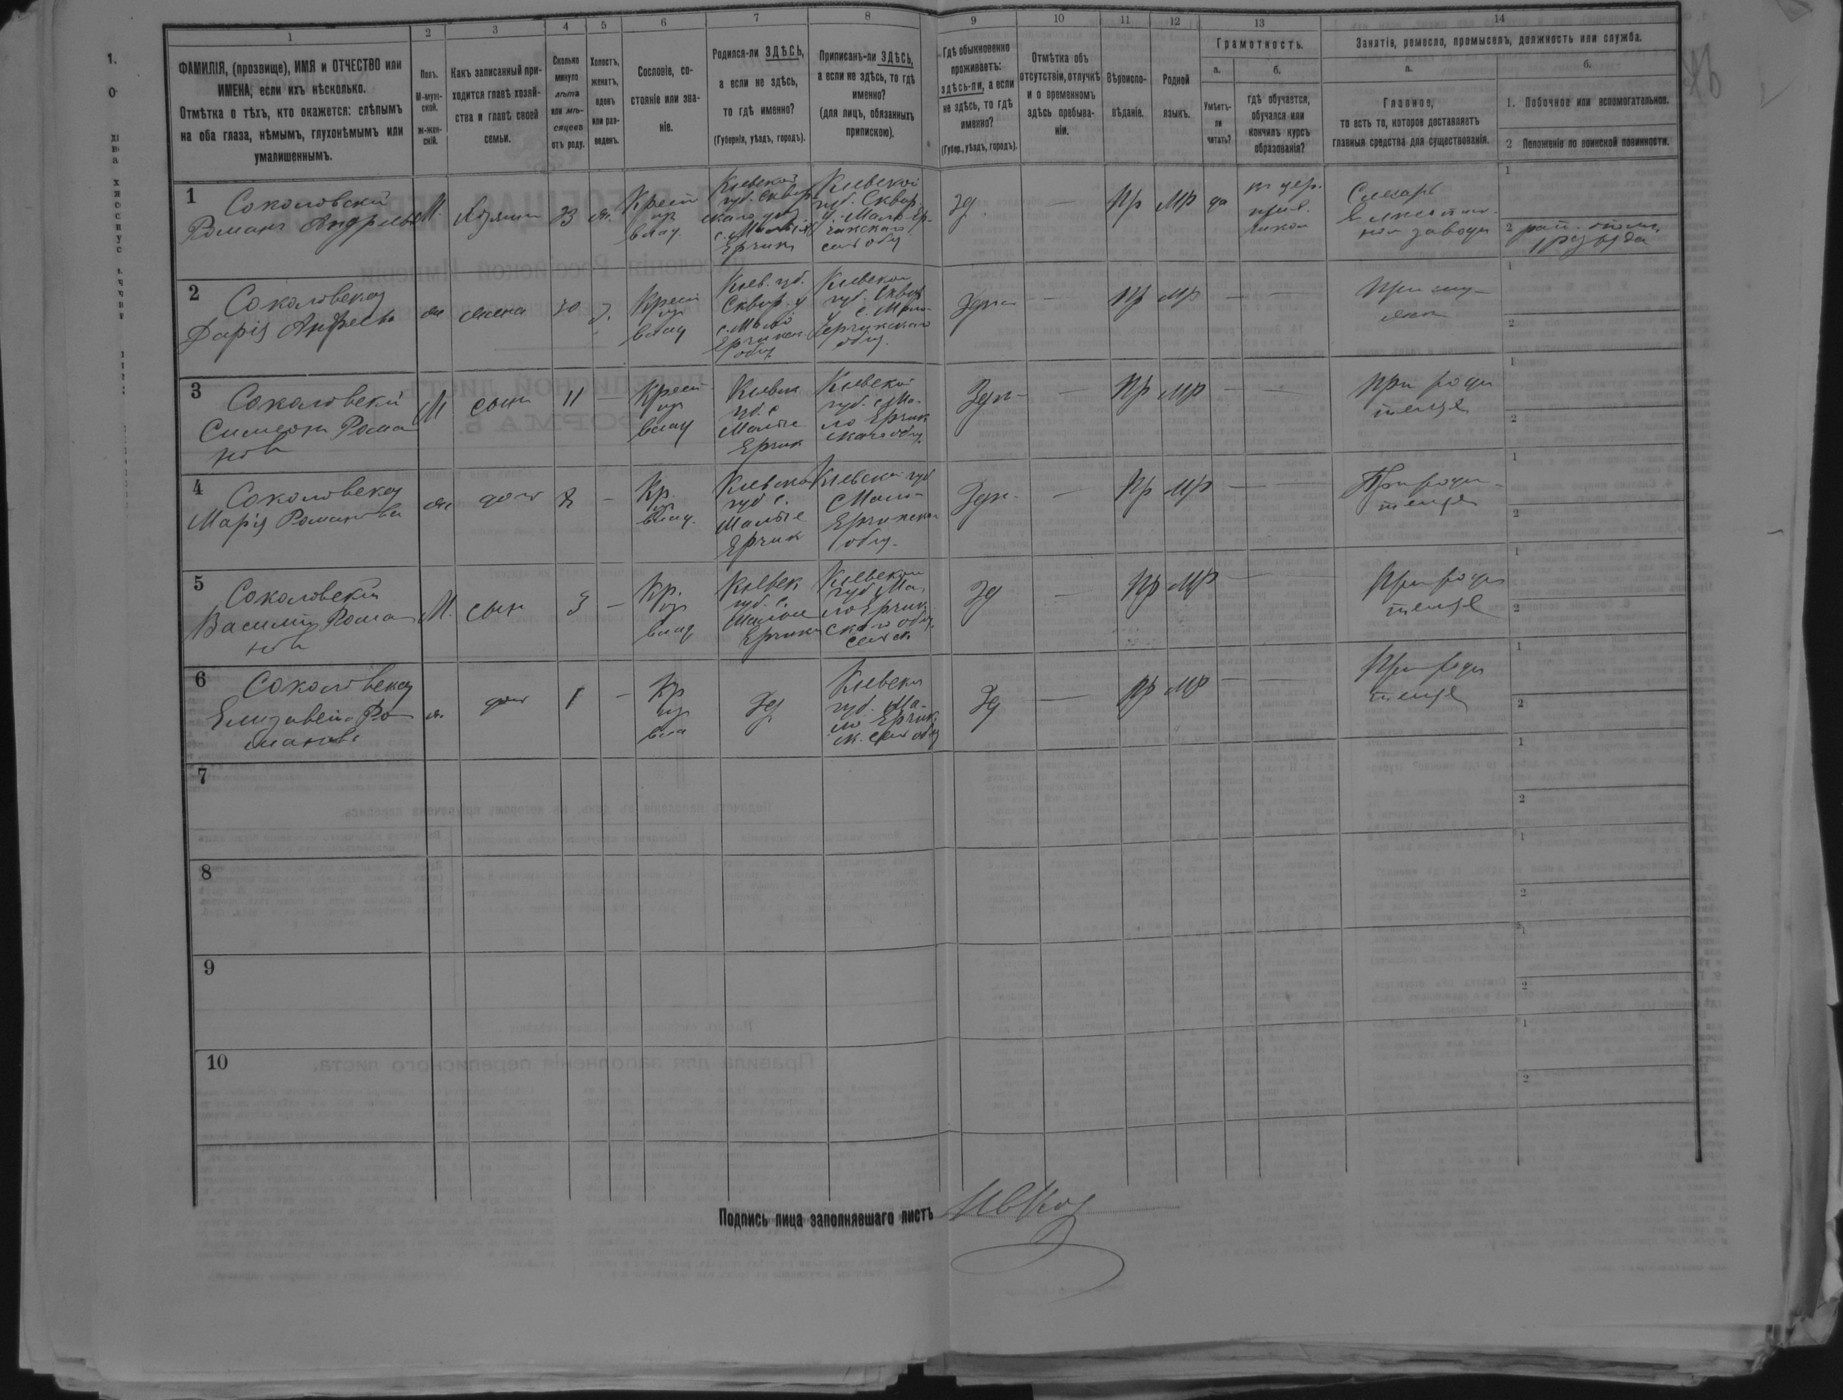 1 2 3 4 5 6 7 8 9 10 11 12 13 14
ФАМИЛІЯ, (прозвище), ИМЯ и ОТЧЕСТВО или
ИМЕНА, если ихъ нѣсколько.
Отмѣтка о тѣхъ, кто окажется: слѣпымъ
на оба глаза, нѣмымъ, глухонѣмымъ или
умалишеннымъ.
Полъ.
М-муж-
ской.
ж-жен-
скій.
Какъ записанный при-
ходится главѣ хозяй-
ства и главѣ своей
семьи.
Сколько
минуло
лѣтъ
или мѣ-
сяцевъ
отъ роду.
Холостъ,
женатъ,
вдовъ
или раз-
веденъ.
Сословіе, со-
стояніе или зва-
ніе.
Родился-ли ЗДѢСЬ,
а если не здѣсь,
то гдѣ именно?
(Губернія, уѣздъ, городъ).
Приписанъ-ли ЗДѢСЬ,
а если не здѣсь, то гдѣ
именно?
(для лицъ, обязанныхъ
припискою).
Гдѣ обыкновенно
проживаетъ:
здѣсь-ли, а если
не здѣсь, то гдѣ
именно?
(Губер., уѣздъ, городъ).
Отмѣтка объ
отсутствіи, отлучкѣ
и о временномъ
здѣсь пребыва-
ніи.
Вѣроиспо-
вѣданіе.
Родной
языкъ.
Грамотность.
а.
Умѣетъ-
ли
читать?
б.
гдѣ обучается,
обучался или
кончилъ курсъ
образованія?
Занятія, ремесло, промыселъ, должность или служба.
а.
Главное,
то есть то, которое доставляетъ
главныя средства для существованія.
б.
1. Побочное или вспомогательное.
2 Положеніе по воинской повинности.
1
Соколовскій
Романъ Андреевъ
М. Хозяинъ 33 ж.
Крест
из
влад
Кіевской
губ. Сквир
скаго уѣз
с. Малый
Ерчикъ
Кіевской
губ. Сквир.
у. Мало-Ер-
чикскаго
сел общ
Зд. — Пр МР да
Слесарь
завода
1
2
2
Соколовская
Дарія
ж жена
Крест
из
влад
Кіев. губ.
Сквир. у
с. Малый
Кіевской
губ. Сквир
общ.
— Пр МР — —
При му-
жѣ
1
2
3
Соколовскій
Симеонъ Рома
новъ
М сынъ 11 —
Крест
из
влад
Кіевск
губ. с
Малый
Ерчик
Кіевской
губ. с Ма-
ло Ерчик
скаго общ
— Пр МР — —
при роди
телѣ
1
2
4
Соколовская
Марія Романова
ж доч 8 —
Кр.
из
влад.
Кіевской
губ с.
Малые
Ерчик
Кіевской губ
с Мало-
Ерчикска
общ.
— Пр МР — —
При роди-
телѣ
1
2
5
Соколовскій
Василій Рома
новъ
М. сын 3 —
Кр.
из
влад
Кіевск
губ. с.
Малый
Ерчикъ
Кіевской
губ. Ма-
ло Ерчик
скаго общ.
Зд Пр МР — —
При роди
телѣ
1
2
6
Соколовская
Елизавета Ро-
манова
ж доч 1 —
Кр
из
вла
Зд
Кіевск
губ. Ма-
ло Ерчик
ск. сел общ
Зд — пр МР — —
При роди
телѣ
1
2
7
1
2
8
1
2
9
1
2
10
1
2
Подпись лица заполнявшаго листъ